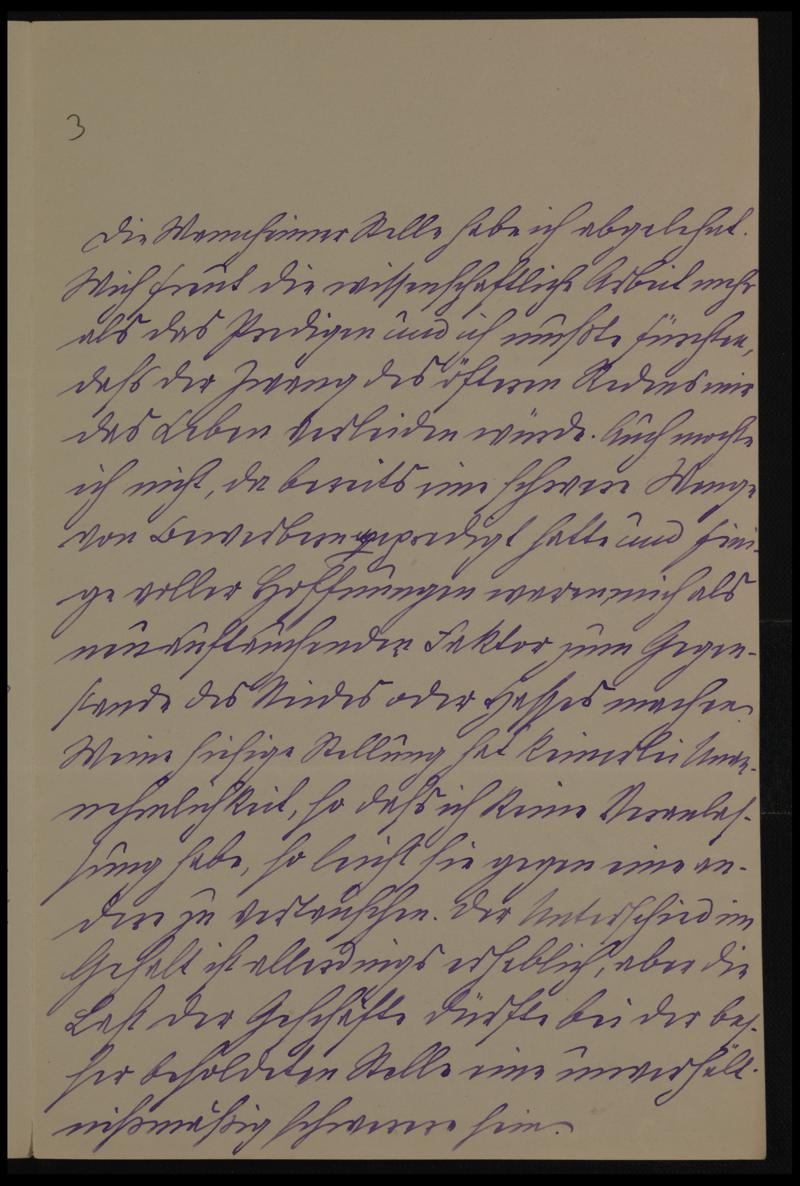 3
Die Mannheimer Stelle habe ich abgelehnt.
Mich freut die wissenschaftliche Arbeit mehr
als das Predigen und ich mußte fürchten,
daß der Zwang des öfteren Redens mir
das Leben verleiden würde. Auch mochte
ich nicht, da bereits eine schwere Menge
von Bewerbern gepredigt hatte und Eini-
ge voller Hoffnungen waren, mich als
neuauftauchenden Faktor zum Gegen-
stande des Neides oder Hasses machen.
Meine hiesige Stellung hat keinerlei Unan-
nehmlichkeit, so daß ich keine Veranlas-
sung habe, so leicht sie gegen eine an-
dere zu vertauschen. Der Unterschied im
Gehalt ist allerdings erheblich, aber die
Last der Geschäfte dürfte bei der bes-
ser besoldeten Stelle eine unverhält-
nißmäßig schwerere sein.